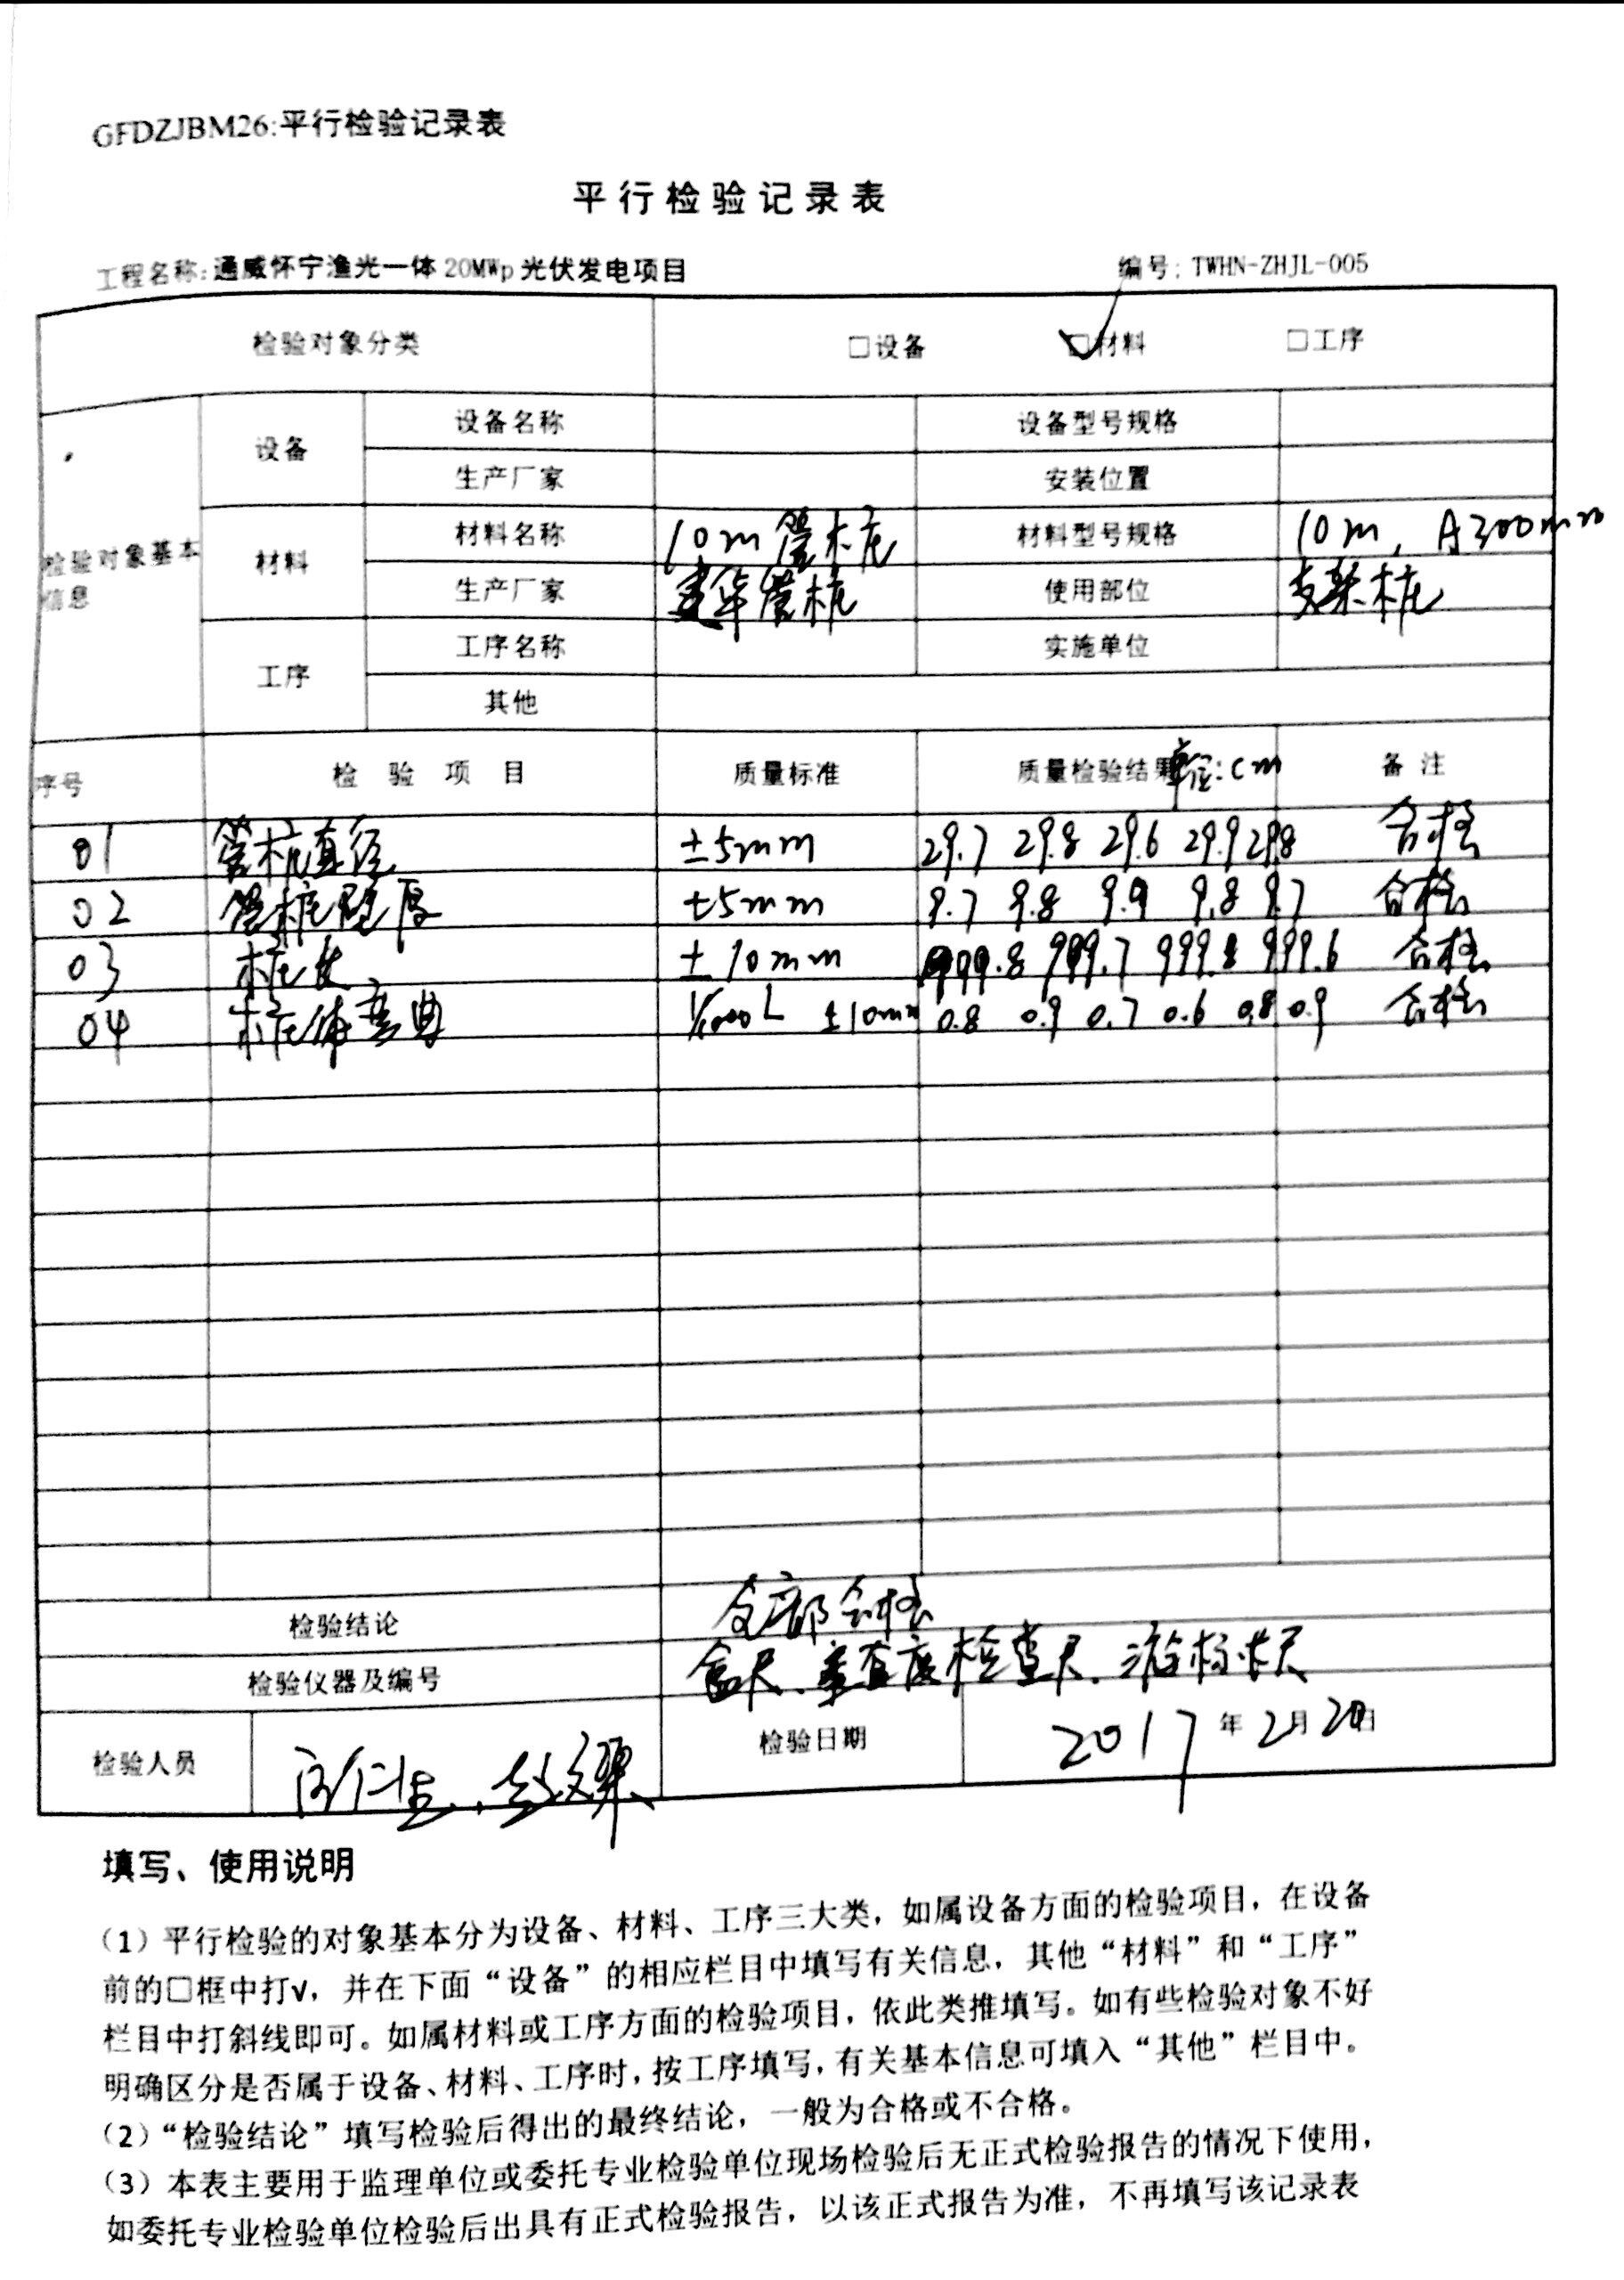 GFDZJBM26:平行检验记录表
平行检验记录表
工程名称:通威怀宁渔光一体 20MWp 光伏发电项目 编号: TWHN-ZHJL-005
检验对象分类 □设备 ☑材料 □工序
检验对象基本信息
设备 设备名称 设备型号规格
生产厂家 安装位置
材料 材料名称 10m管桩 材料型号规格 10m, A300mm
生产厂家 建华管桩 使用部位 支架桩
工序 工序名称 实施单位
其他
序号 检验项目 质量标准 质量检验结果 单位:cm 备注
01 管桩直径 ±5mm 29.7 29.8 29.6 29.9 29.8 合格
02 管桩壁厚 ±5mm 9.7 9.8 9.9 9.8 9.7 合格
03 桩长 ±10mm 999.8 999.7 999.8 999.6 合格
04 桩体弯曲 1/1000L ±10mm 0.8 0.9 0.7 0.6 0.8 0.9 合格
检验结论 全部合格
检验仪器及编号 盒尺、垂直度检查尺、游标卡尺
检验人员 检验日期 2017年2月20日
填写、使用说明
(1) 平行检验的对象基本分为设备、材料、工序三大类，如属设备方面的检验项目，在设备
前的□框中打√，并在下面“设备”的相应栏目中填写有关信息，其他“材料”和“工序”
栏目中打斜线即可。如属材料或工序方面的检验项目，依此类推填写。如有些检验对象不好
明确区分是否属于设备、材料、工序时，按工序填写，有关基本信息可填入“其他”栏目中。
(2)“检验结论”填写检验后得出的最终结论，一般为合格或不合格。
(3) 本表主要用于监理单位或委托专业检验单位现场检验后无正式检验报告的情况下使用，
如委托专业检验单位检验后出具有正式检验报告，以该正式报告为准，不再填写该记录表